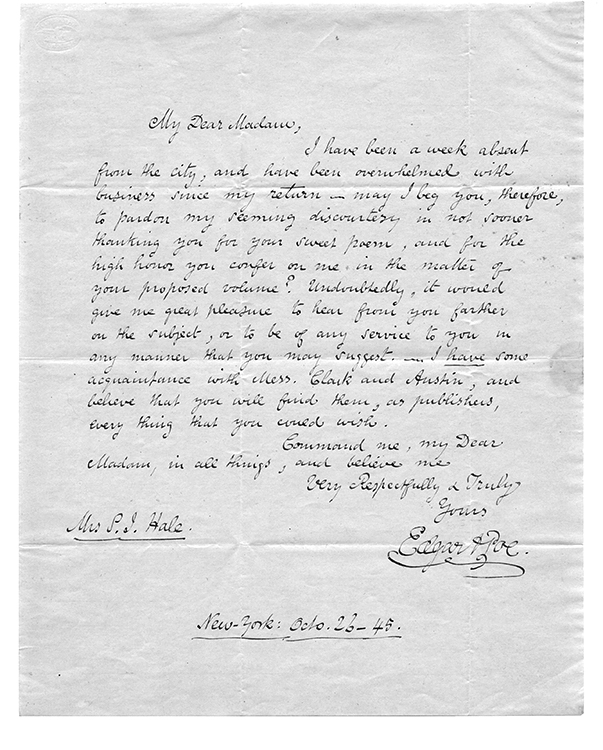 My Dear Madam,
I have been a week absent
from the city, and have been overwhelmed with
business since my return — may I beg you, therefore,
to pardon my seeming discourtesy in not sooner
thanking you for your sweet poem, and for the
high honor you confer on me in the matter of
your proposed volume? Undoubtedly, it would
give me great pleasure to hear from you farther
on the subject, or to be of any service to you in
any manner that you may suggest. — I have some
acquaintance with Mess. Clark and Austin, and
believe that you will find them, as publishers,
every thing that you could wish.
Command me, my Dear
Madam, in all things, and believe me
Very Respectfully & Truly
Yours
Mrs S. J. Hale.
Edgar A Poe.
New-York: Octo. 26 — 45.